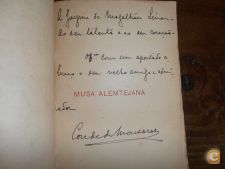 A Joaquim de Magalhães Lima
ao seu talento e ao seu coração
Off.ce com um apertado a
braço o seu velho amigo e admi
rador
MUSA ALEMTEJANA
Conde de Monsaraz